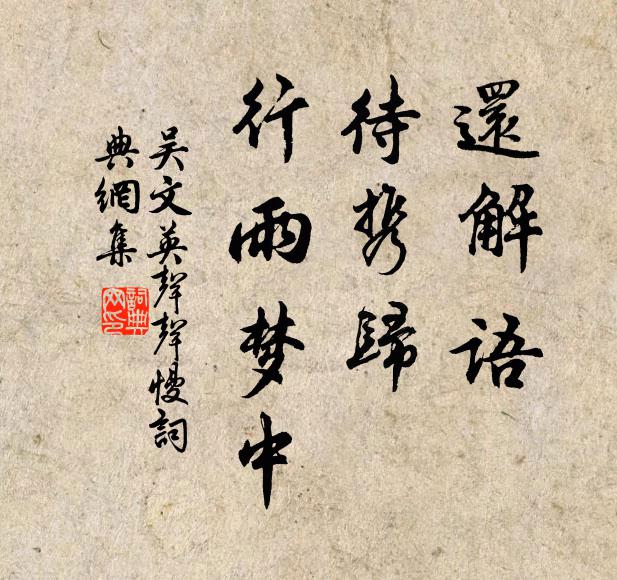 還解語
待携歸
行雨梦中
吴文英聲聲慢詞
典網集
詞典网印